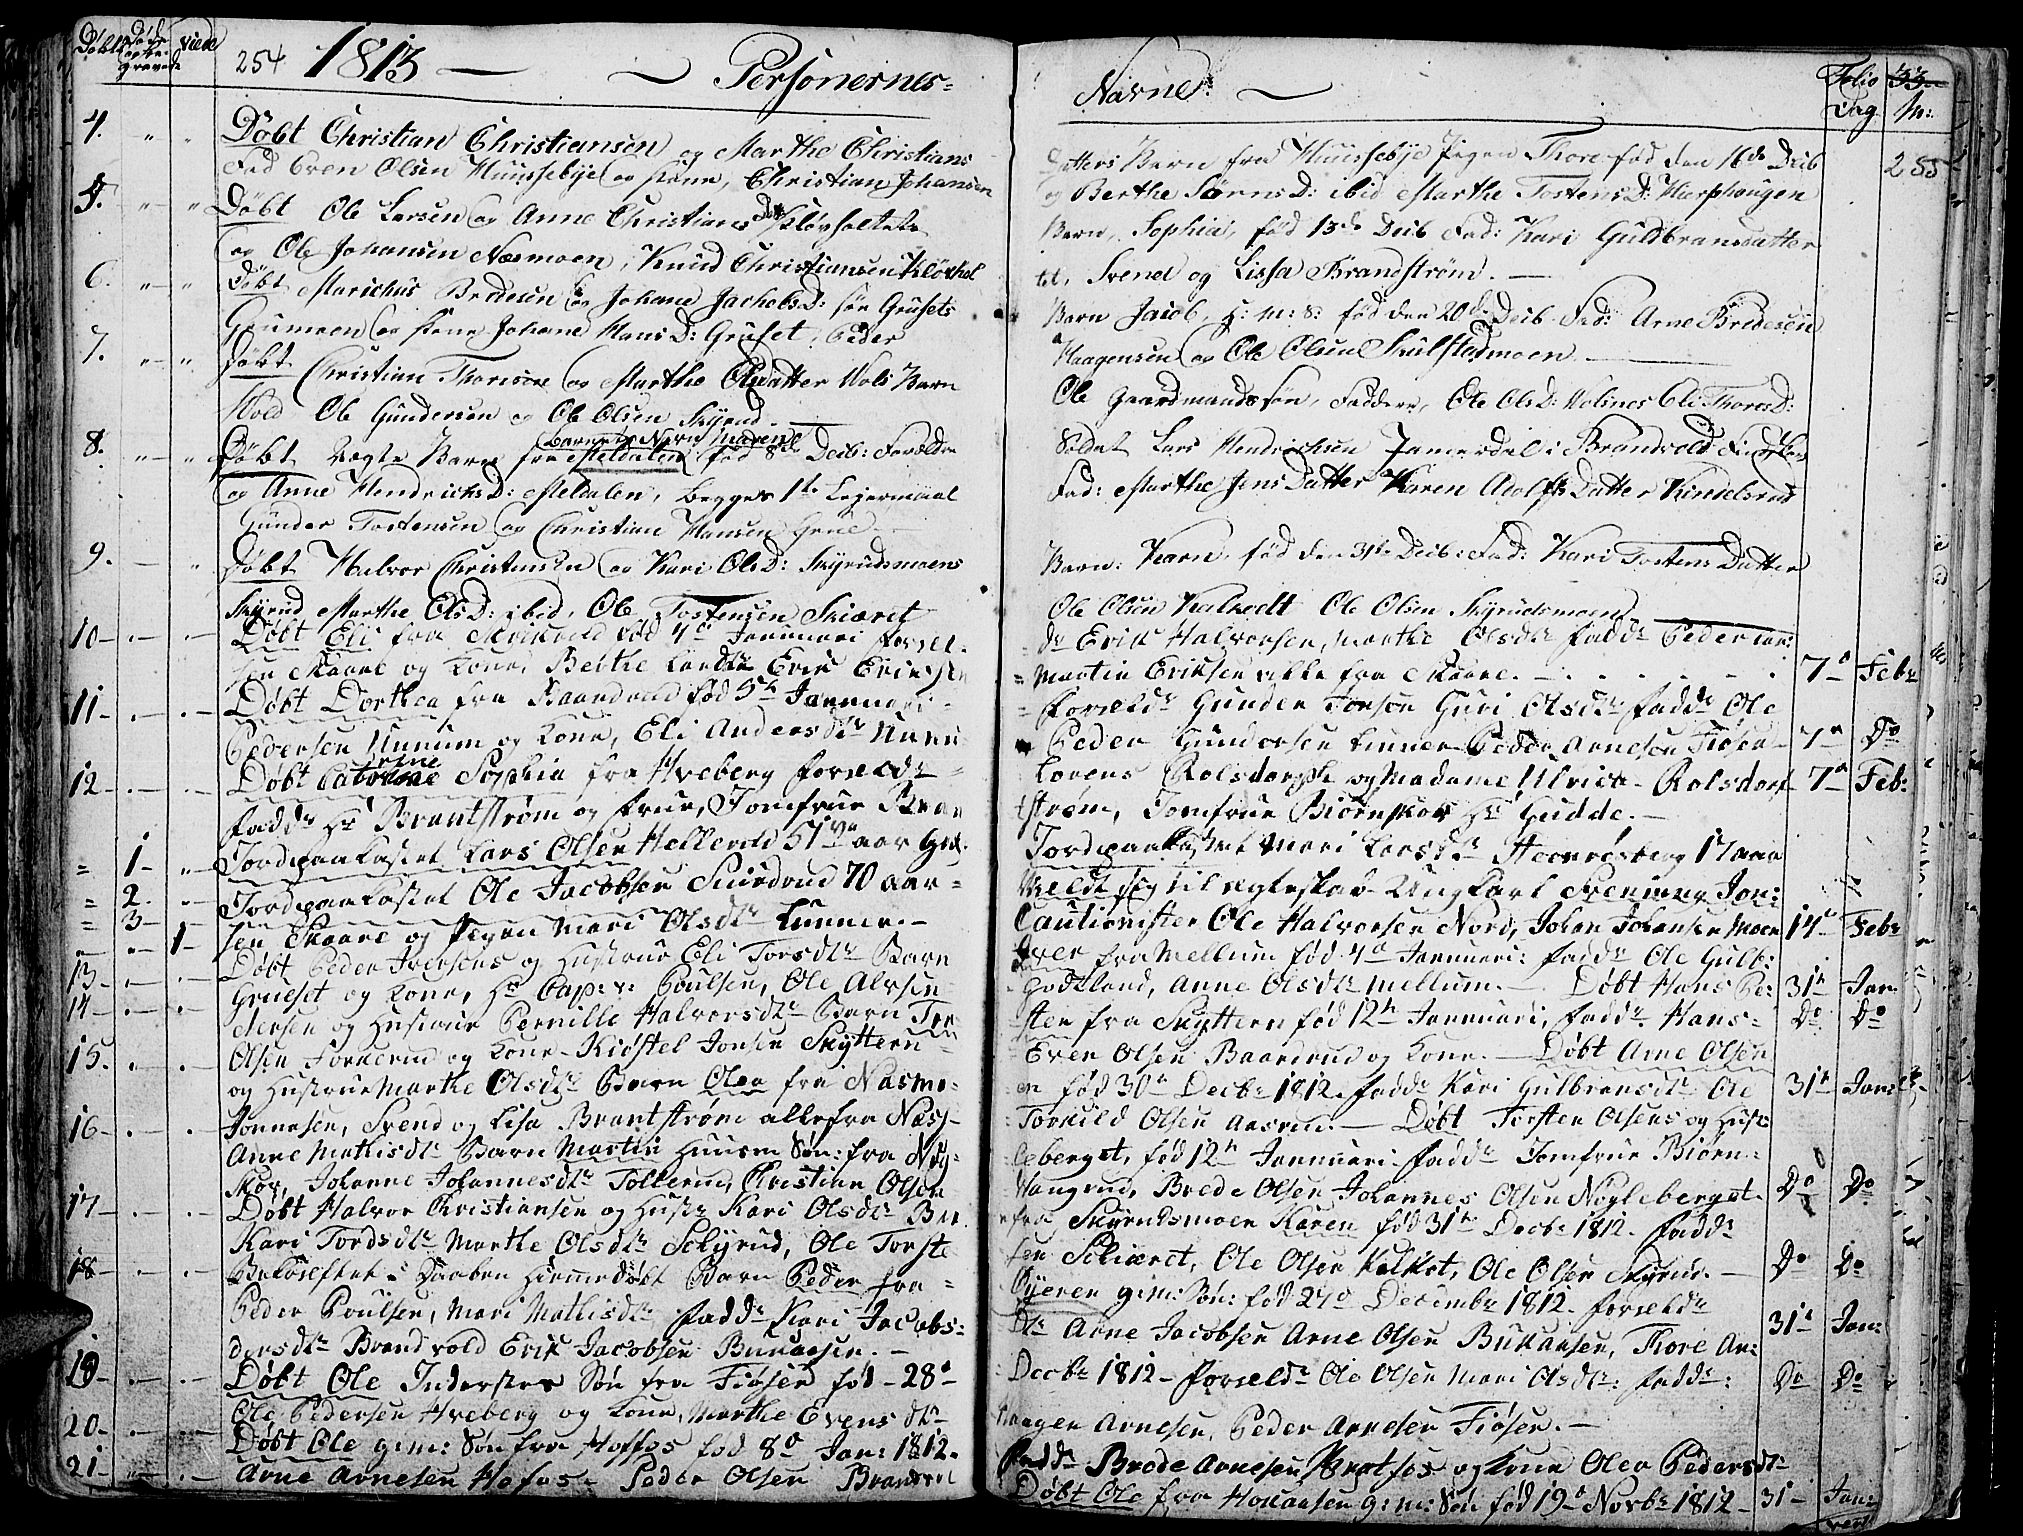 Døbte Døde og begravede Viede 254 1813 — Personernes=
4. " " Døbt Christian Christiansen og Marthe Christians
Fad Even Olsen Huussebye og Kone, Christian Johansen
5. " " Døbt Ole Larsen og Anne Christians Dtr Kløvholtets
og Ole Johansen Næsmoen, Knud Christiansen Kløvhol
6. " " Døbt Marichus Bredesen og Johane Jachobs D: sør Grusets
Grumoen og Kone Johane Hans D: Gruset, Peder
7. " " Døbt Christian Thoresen og Marthe Olsdatter Vols Barn
Vold Ole Gundersen og Ole Olsen Skyrud
Barnets Navn Maren
8. " " Døbt Uægte Barn fra Meldalen født 8de Decb: Forældre
og Anne Hendrichs D: Meldalen, begges 1te Lejermaal
Gunder Tostensen og Christian Hansen Grue
9. " Døbt Halvor Christensen og Kari Ols D: Skyrudsmoens
Skyrud Marthe Ols D: ibid, Ole Tostensen Skiæret
10 Døbt Eli fra født 4de Januari foræl.
sen Skaare og Kone, Berthe Erik Eriksen
11 Døbt Dorthea fra Baardvold født 5te Januari
Pedersen Unnum og Kone, Eli Andersdtr Unnu
12 Døbt Catrine Sophia fra Hveberg foræld
fadd: Hr Brantstrøm og frue, Jomfrue Bran
1 Jordpaakastet Lars Olsen Hellerold 51 1/2 aar Gml.
2 Jordpaakastet Ole Jacobsen Snirdrud 70 aar=
3 1 sen Skaare og Pigen Mari Olsdtr Lunner.—
13 Døbt Peder Iversens og Hustrue Eli Torsdtr Barn
Grueset og Kone, Hr Casper Poulsen, Ole Alfsen
14 dersen og Hustrue Pernille Halvorsdtr Barn Tor
Olsen Tornerud og Kone Kiøstel Jonsen Skyttern
15. og Hustrue Marthe Olsdtr Barn Olea fra Næsmo=
Jonnasen, Svend og Lisa Brantstrøm alle fra Næss-
16 Anne Mathisdtr Barn Martin Huusm Søn: fra Nøy=
Skor, Johanne Johannesdtr Tollerud, Christian Olsen
17 Døbt Halvor Kristiansen og Hustr Kari Olsdtr Bar
Kari Tordsdtr Marthe Olsdtr Schyrud, Ole Torste
18 Bekræftet Daaben Hiemmedøbt Barn Peder fra=
Peder Poulsen, Mari Mathisdtr Fadd: Kari Jacobs=
dersdtr Brandvold Erik Jacobsen Bunaasen.—
19 Døbt Ole Inderster Søn fra Fiøsen fød 28de
Ole Pedersen Hveberg og Kone, Marthe Evensdtr
20 Døbt Ole g:m: Søn fra Hoffos fød 8de Jan: 1812.
21 Arne Arnesen Hofos Peder Olsen Brandvol
Navne Folio 33 Dag M:
datters Barn fra Huussebye Pigen Thore fød den 16de Decb 255
og Berthe Sørns D: ibid Marthe Tostens D: Harphaugen
Barn, Sophia, fød 13de Decb Fad: Kari Guldbransdatter
tet, Svend og Lissa Brandstrøm.—
Barn Jacob, H: m: S: fød den 20de Decb Fad: Arne Bredesen
Haagensen og Ole Olsen Skulstadmoen
Ole Gaardmandssøn, Faddere, Ole Ols D: Volsnes Eli Thores D:
Soldat Lars Hendrichsen Jamerdal i Brandvold Finskov
Fad: Marthe Jens Datter Karen Adolfs Datter Kindelsrud
Barn: Karn, fød den 31te Decb: Fad: Kari Tostens Datter
Ole Olsen Kalvedt Ole Olsen Skyrudsmoen
dr Erik Halvorsen, Marthe Olsdtr fadd: Peder Lar:
Martin Eriksen alle fra Skaare.— 7de Febr
Foræld: Gunder Jonson Guri Olsdtr fadd: Ole
Peder Gundersen Lunner Peder Arnesen Fiøsen 7de Do
Lorens Rolsdorph og Madame Ulrica Rolsdorf 7de Feb:
tstrøm, Jomfrue Biørnskov Hr Gudde.—
Jordpaakastet Mari Larsdtr Heenrøsberg 17 aar
Meldt sig til ægteskab Ungkarl Heming Jon:
Cautionister Ole Halvorsen Nord, Johan Johansen Moen 14de Febr
Iver fra Mellum fød 4de Januari: fadd: Ole Gulb:
Godtland, Anne Olsdtr Mellum.— Døbt Hans Pe: 31te Jan
sten fra Skyttern fød 12te Januari, fadd: Hans= Do Do
Even Olsen Baardrud og Kone.— Døbt Arne Olsen
en fød 30te Decbr 1812. fadd: Kari Gulbransdtr Ole 31te Jan:
Torkild Olsen Aasrud.— Døbt Torsten Olsens og Hust
leberget, fød 12te Januari fadd: Jomfrue Biørn=
Haugrud, Brede Olsen Johannes Olsen Nøyleberget. Do Do
fra Skyrudsmoen Karen fød 31te Decbr 1812. Fadd:
sen Schiæret, Ole Olsen Kalket, Ole Olsen Skyrud.— Do Do
Byeren g:m: Søn: fød 27de Decembr 1812. foræld:
Dtr Arne Jacobsen Arne Olsen Bunaasen, Tore An: 31te Jan:
Decbr 1812— forældr Ole Olsen Mari Olsdtr: fadd: Do Do
Haagen Arnesen, Peder Arnesen Fiøsen.—
Fadd: Brede Arnesen og Kone Olea Pedersdtr
Døbt Ole fra Honaasen g:m: Søn fød 19de Novbr 1812— 31— Jan: